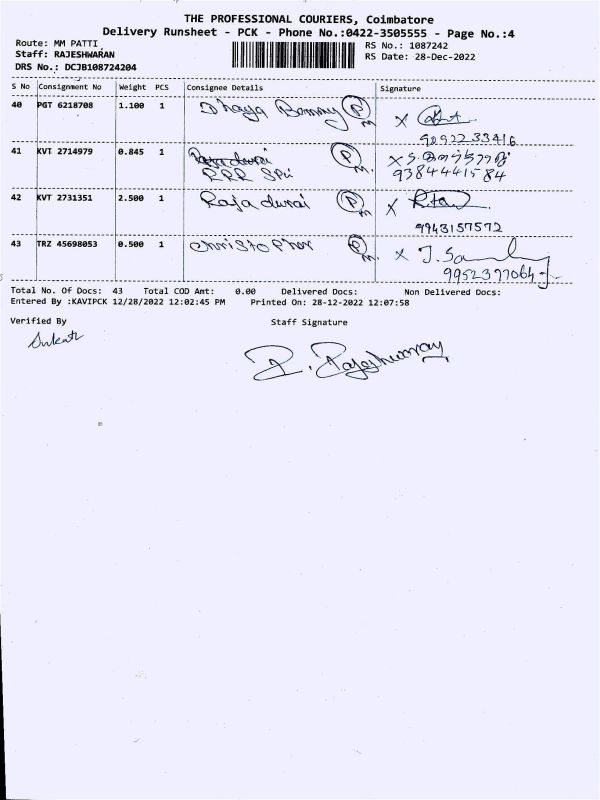 THE PROFESSIONAL COURIERS, Coimbatore
Delivery Runsheet - PCK - Phone No.:0422-3505555 - Page No.:4
Route: MM PATTI
RS No.: 1087242
Staff: RAJESHWARAN
RS Date: 28-Dec-2022
DRS No.: DCJB108724204
S No Consignment No Weight PCS Consignee Details Signature
40 PGT 6218708 1.100 1 Dhaya Bommy P M X
9092233416
41 KVT 2714979 0.845 1 Rajadurai P M. X
RRR SPii 9384441584
42 KVT 2731351 2.500 1 Raja durai P M X
9943157572
43 TRZ 45698053 0.500 1 christopher P M. X
9952397064
Total No. Of Docs: 43 Total COD Amt: 0.00 Delivered Docs: Non Delivered Docs:
Entered By :KAVIPCK 12/28/2022 12:02:45 PM Printed On: 28-12-2022 12:07:58
Verified By Staff Signature
R. Rajeshwaran